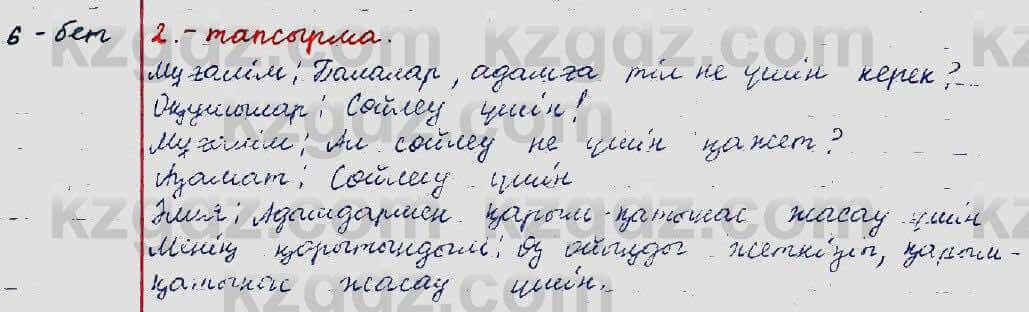 6 - бет 2.- тапсырма.
Мұғалім: Балалар, адамға тіл не үшін керек?
Оқушылар: Сөйлеу үшін!
Мұғалім: Ал сөйлеу не үшін қажет?
Азамат: Сөйлесу үшін
Әлия: Адамдармен қарым-қатынас жасау үшін
Менің қорытындым: Өз ойыңды жеткізіп, қарым-
қатынас жасау үшін.
kzgdz.com